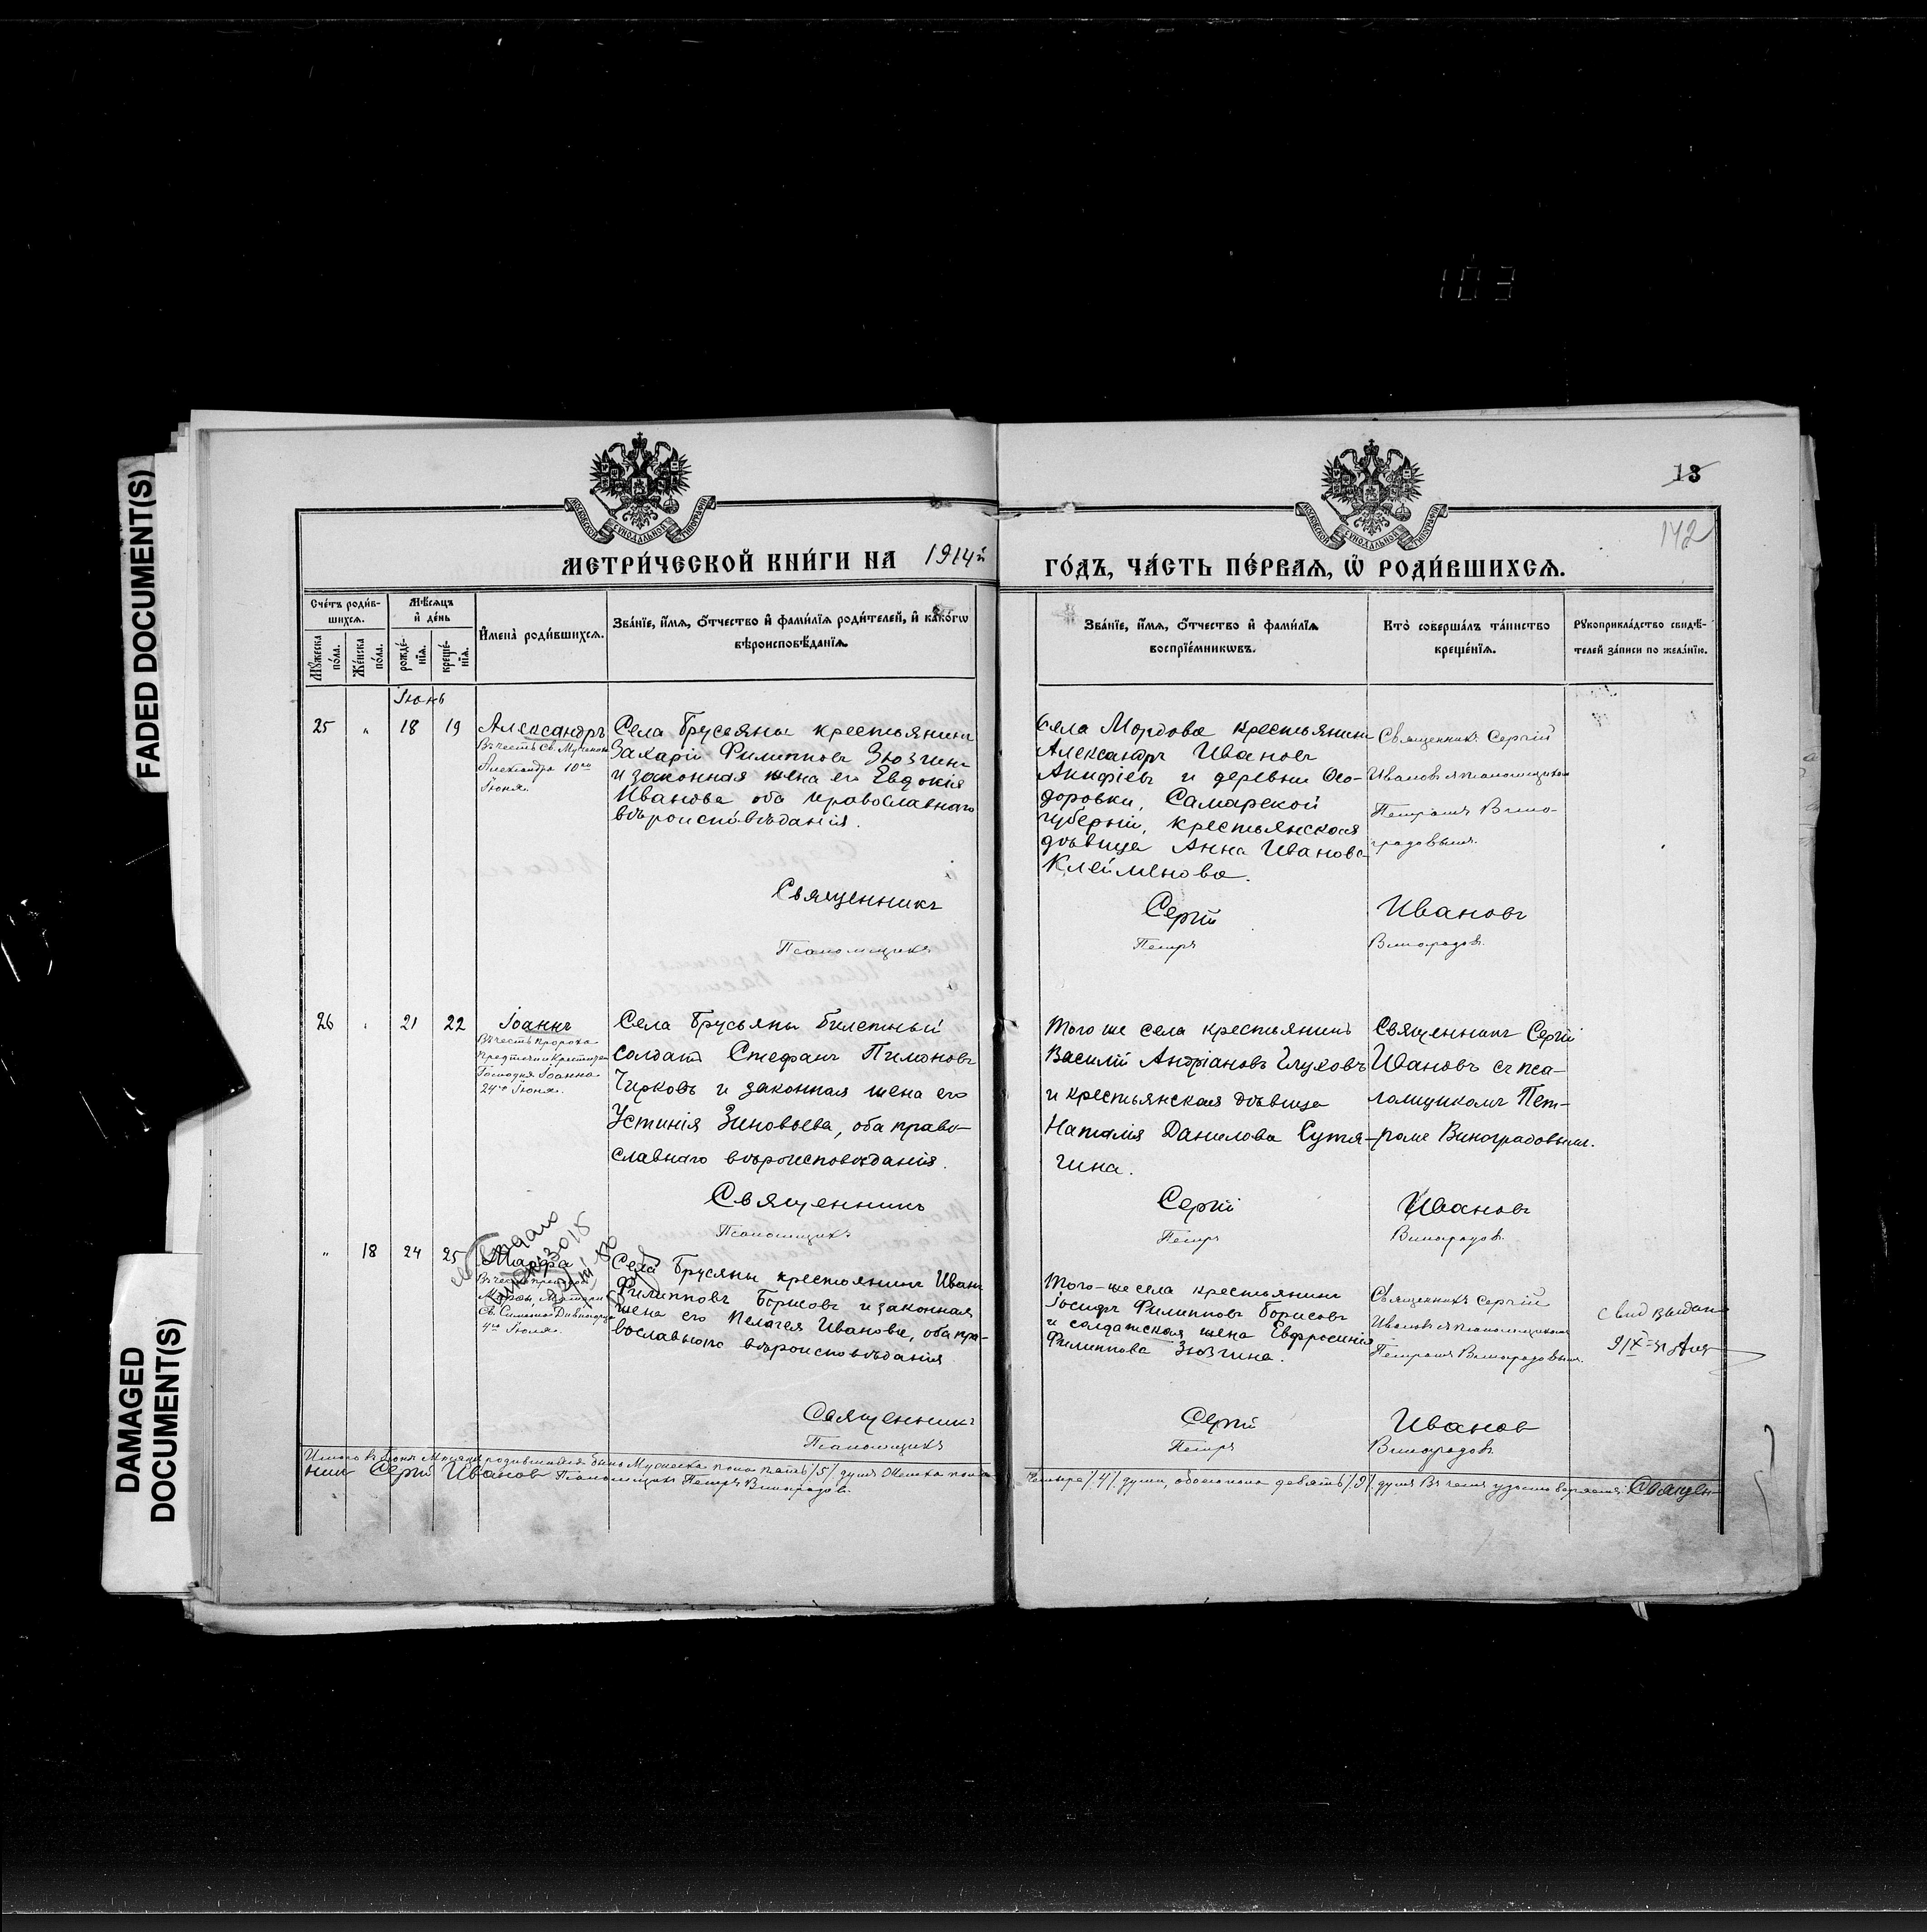 103
FADED DOCUMENT(S)
DAMAGED
DOCUMENT(S)
13
142
МЕТРИ́ЧЕСКОЙ КНИ́ГИ НА 1914й
ГО́ДЪ, ЧА́СТЬ ПЕ́РВАѦ, Ѡ҆ РОДИ́ВШИХСѦ.
Сче́тъ роди́в-
шихсѧ.
Мꙋ́жеска
по́ла.
Же́нска
по́ла.
Мѣ́сѧцъ
и҆ де́нь
рожде́-
нїѧ.
креще́-
нїѧ.
И҆мена̀ роди́вшихсѧ.
Зва́нїе, и҆́мѧ, ѻ҆́тчество и҆ фами́лїѧ роди́телей, и҆ како́гѡ
вѣроисповѣ́данїѧ.
Зва́нїе, и҆́мѧ, ѻ҆́тчество и҆ фами́лїѧ
воспрїе́мникѡвъ.
Кто̀ соверша́лъ та́инство
креще́нїѧ.
Рꙋкоприкла́дство свидѣ́-
телей за́писи по жела́нїю.
Іюнь
25 " 18 19
Александръ
Въ честь Св. Мученика
Александра 10го
Іюня.
Села Брусяны крестьянинъ
Захарій Филипповъ Зюзинъ
и законная жена его Евдокія
Иванова оба православнаго
вѣроисповѣданія.
Села Мордова крестьянинъ
Александръ Ивановъ
Акифіевъ и деревни Ѳео-
доровки, Самарской
губерніи, крестьянская
дѣвица Анна Иванова
Клейменова.
Священникъ Сергій
Ивановъ съ псаломщикомъ
Петромъ Вино-
градовымъ.
Священникъ Сергій Ивановъ
Псаломщикъ Петръ Виноградовъ.
26 " 21 22
Іоаннъ
Въ честь пророка
Предтечи и Крестителя
Господня Іоанна
24го Іюня.
Села Брусяны билетный
солдатъ Стефанъ Пимоновъ
Чирковъ и законная жена его
Устинія Зиновьева, оба право-
славнаго вѣроисповѣданія.
Того же села крестьянинъ
Василій Андріановъ Глуховъ
и крестьянская дѣвица
Наталія Данилова Сутя-
гина.
Священникъ Сергій
Ивановъ съ пса-
ломщикомъ Пет-
ромъ Виноградовымъ.
Священникъ Сергій Ивановъ
Псаломщикъ Петръ Виноградовъ.
" 18 24 25
Марѳа
Въ честь преподобной
Марѳы, Матери
Св. Симеона Дивногорца
4го Іюля.
Села Брусяны крестьянинъ Иванъ
Филипповъ Борисовъ и законная
жена его Пелагея Иванова, оба пра-
вославнаго вѣроисповѣданія
Того-же села крестьянинъ
Іосифъ Филипповъ Борисовъ
и солдатская жена Евфросинія
Филиппова Зюзина.
Священникъ Сергій
Ивановъ съ псаломщикомъ
Петромъ Виноградовымъ.
Свид выдан
Священникъ Сергій Ивановъ
Псаломщикъ Петръ Виноградовъ.
Итого въ Іюнѣ мѣсяцѣ родившихся было Мужеска пола пять /5/ душъ Женска пола
четыре /4/ души, обоего пола девять /9/ душъ Въ чемъ удостовѣряемъ: Священ-
никъ Сергій Ивановъ Псаломщикъ Петръ Виноградовъ.